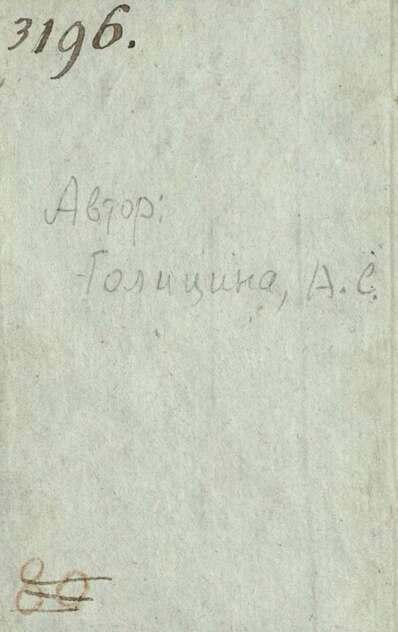 3196.
Автор:
Голицина, А. С.
80